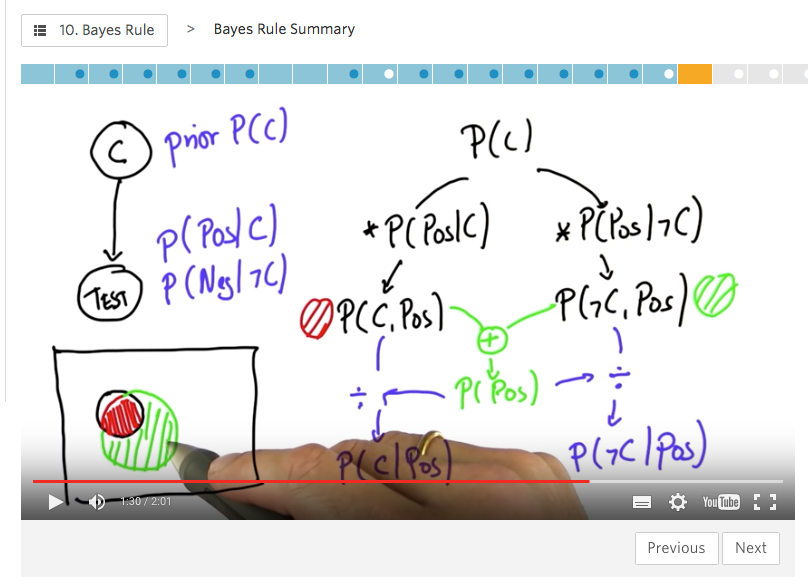 10. Bayes Rule > Bayes Rule Summary
C
prior P(C)
P(Pos|C)
P(Neg|¬C)
TEST
P(C)
* P(Pos|C)
* P(Pos|¬C)
P(C, Pos)
P(¬C, Pos)
+
P(Pos)
÷
÷
P(C|Pos)
P(¬C|Pos)
1:30 / 2:01
YouTube
Previous
Next